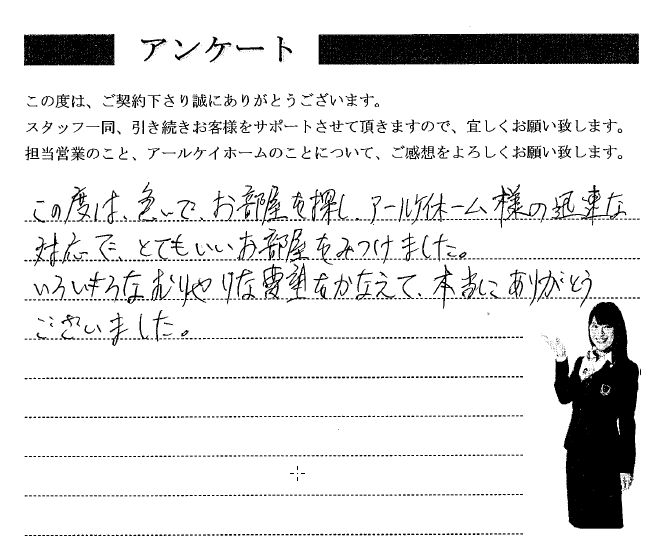 アンケート
この度は、ご契約下さり誠にありがとうございます。
スタッフ一同、引き続きお客様をサポートさせて頂きますので、宜しくお願い致します。
担当営業のこと、アールケイホームのことについて、ご感想をよろしくお願い致します。
この度は、急いで、お部屋を探し、アールケイホーム様の迅速な
対応で、とてもいいお部屋をみつけました。
いろいろなむりやりな要望をかなえて、本当にありがとう
ございました。